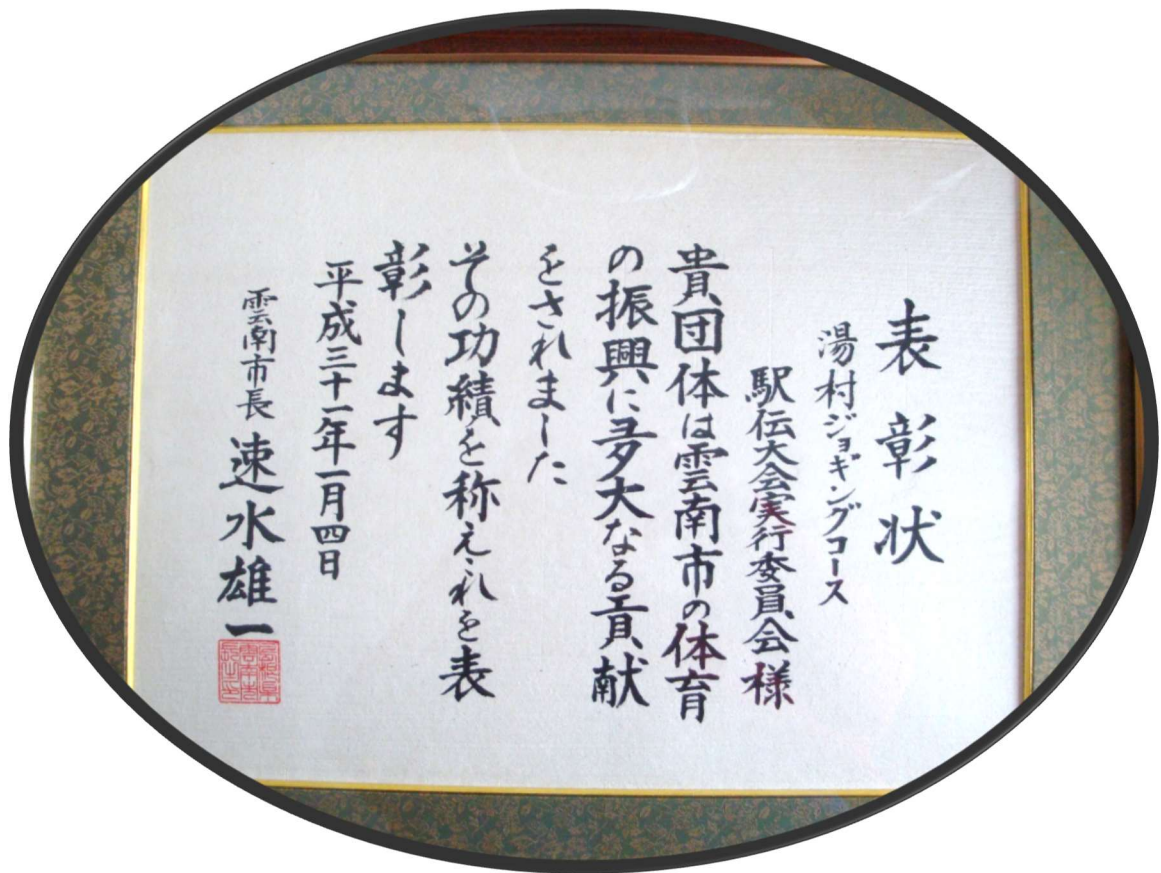 表彰状
湯村ジョギングコース
駅伝大会実行委員会様
貴団体は雲南市の体育
の振興に多大なる貢献
をされました
その功績を称えこれを表
彰します
平成三十一年一月四日
雲南市長 速水雄一